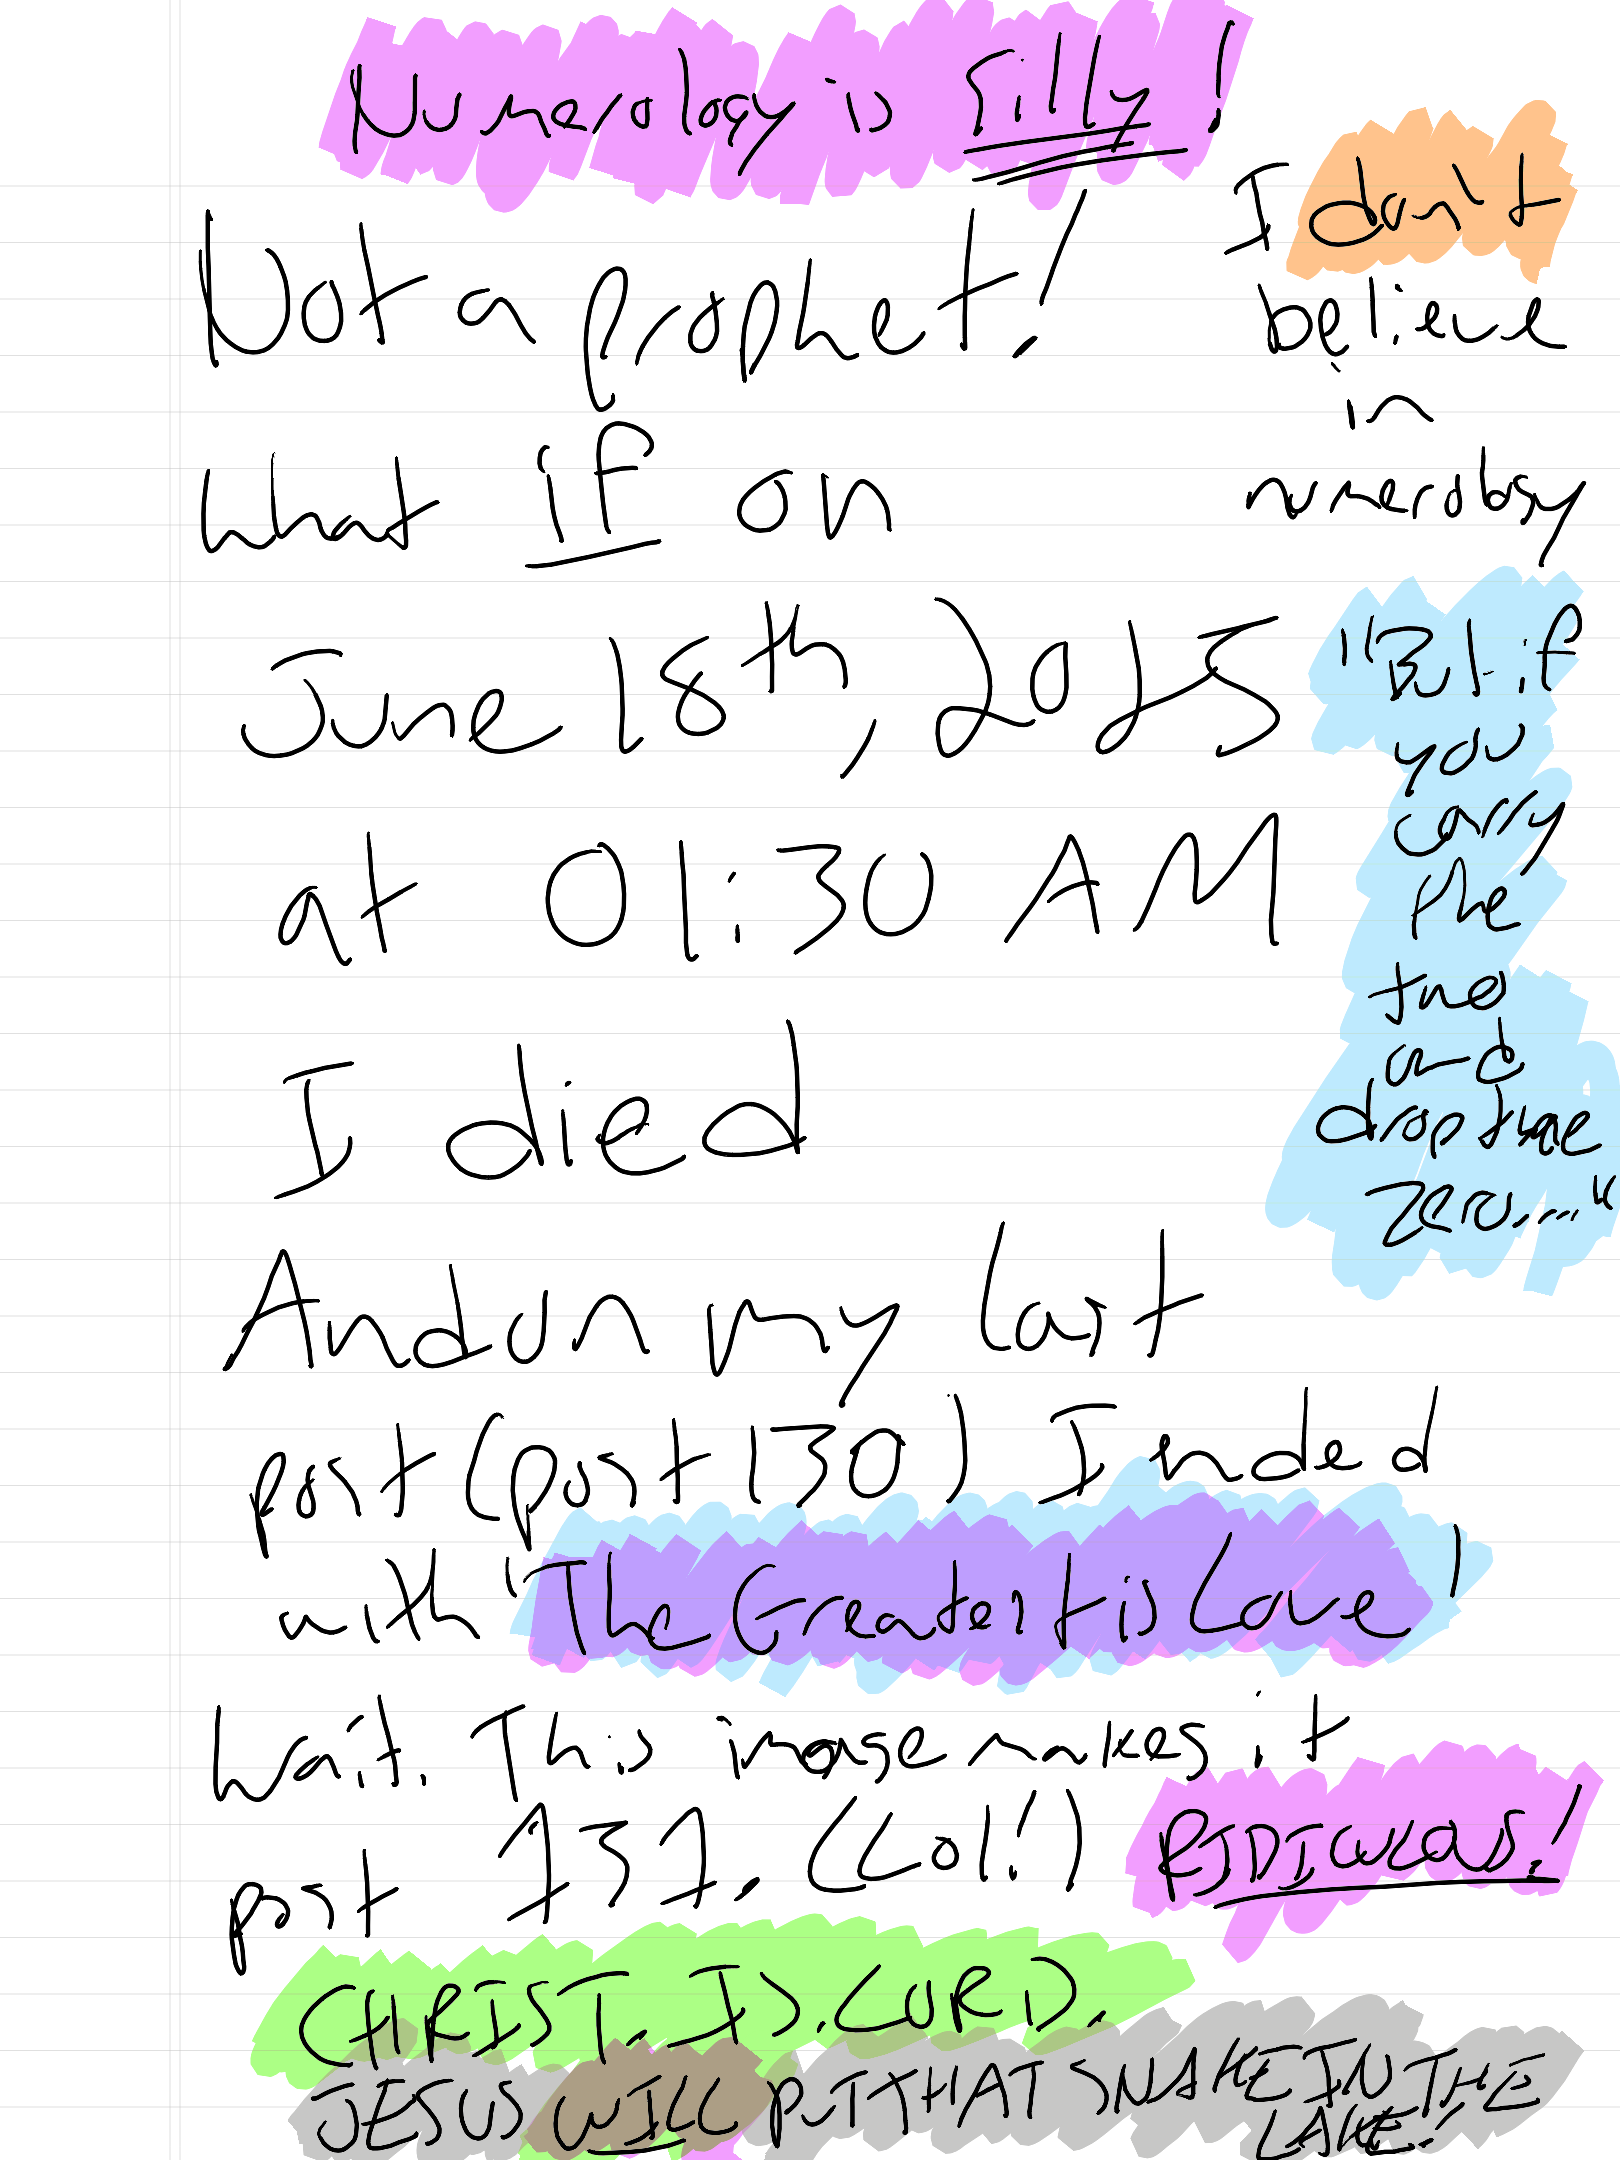 Numerology is Silly!
I don't
believe
in
numerology
Not a prophet!
What if on
June 18th, 2025
at 01:30 AM
I died
And on my last
post (post 130) I ended
with "The Greatest is Love"
"But if
you
carry
the
two
and
drop the
zero...."
Wait. This image makes it
post 131. (Lol!) RIDICULOUS!
CHRIST. IS. LORD.
JESUS WILL PUT THAT SNAKE IN THE
LAKE!